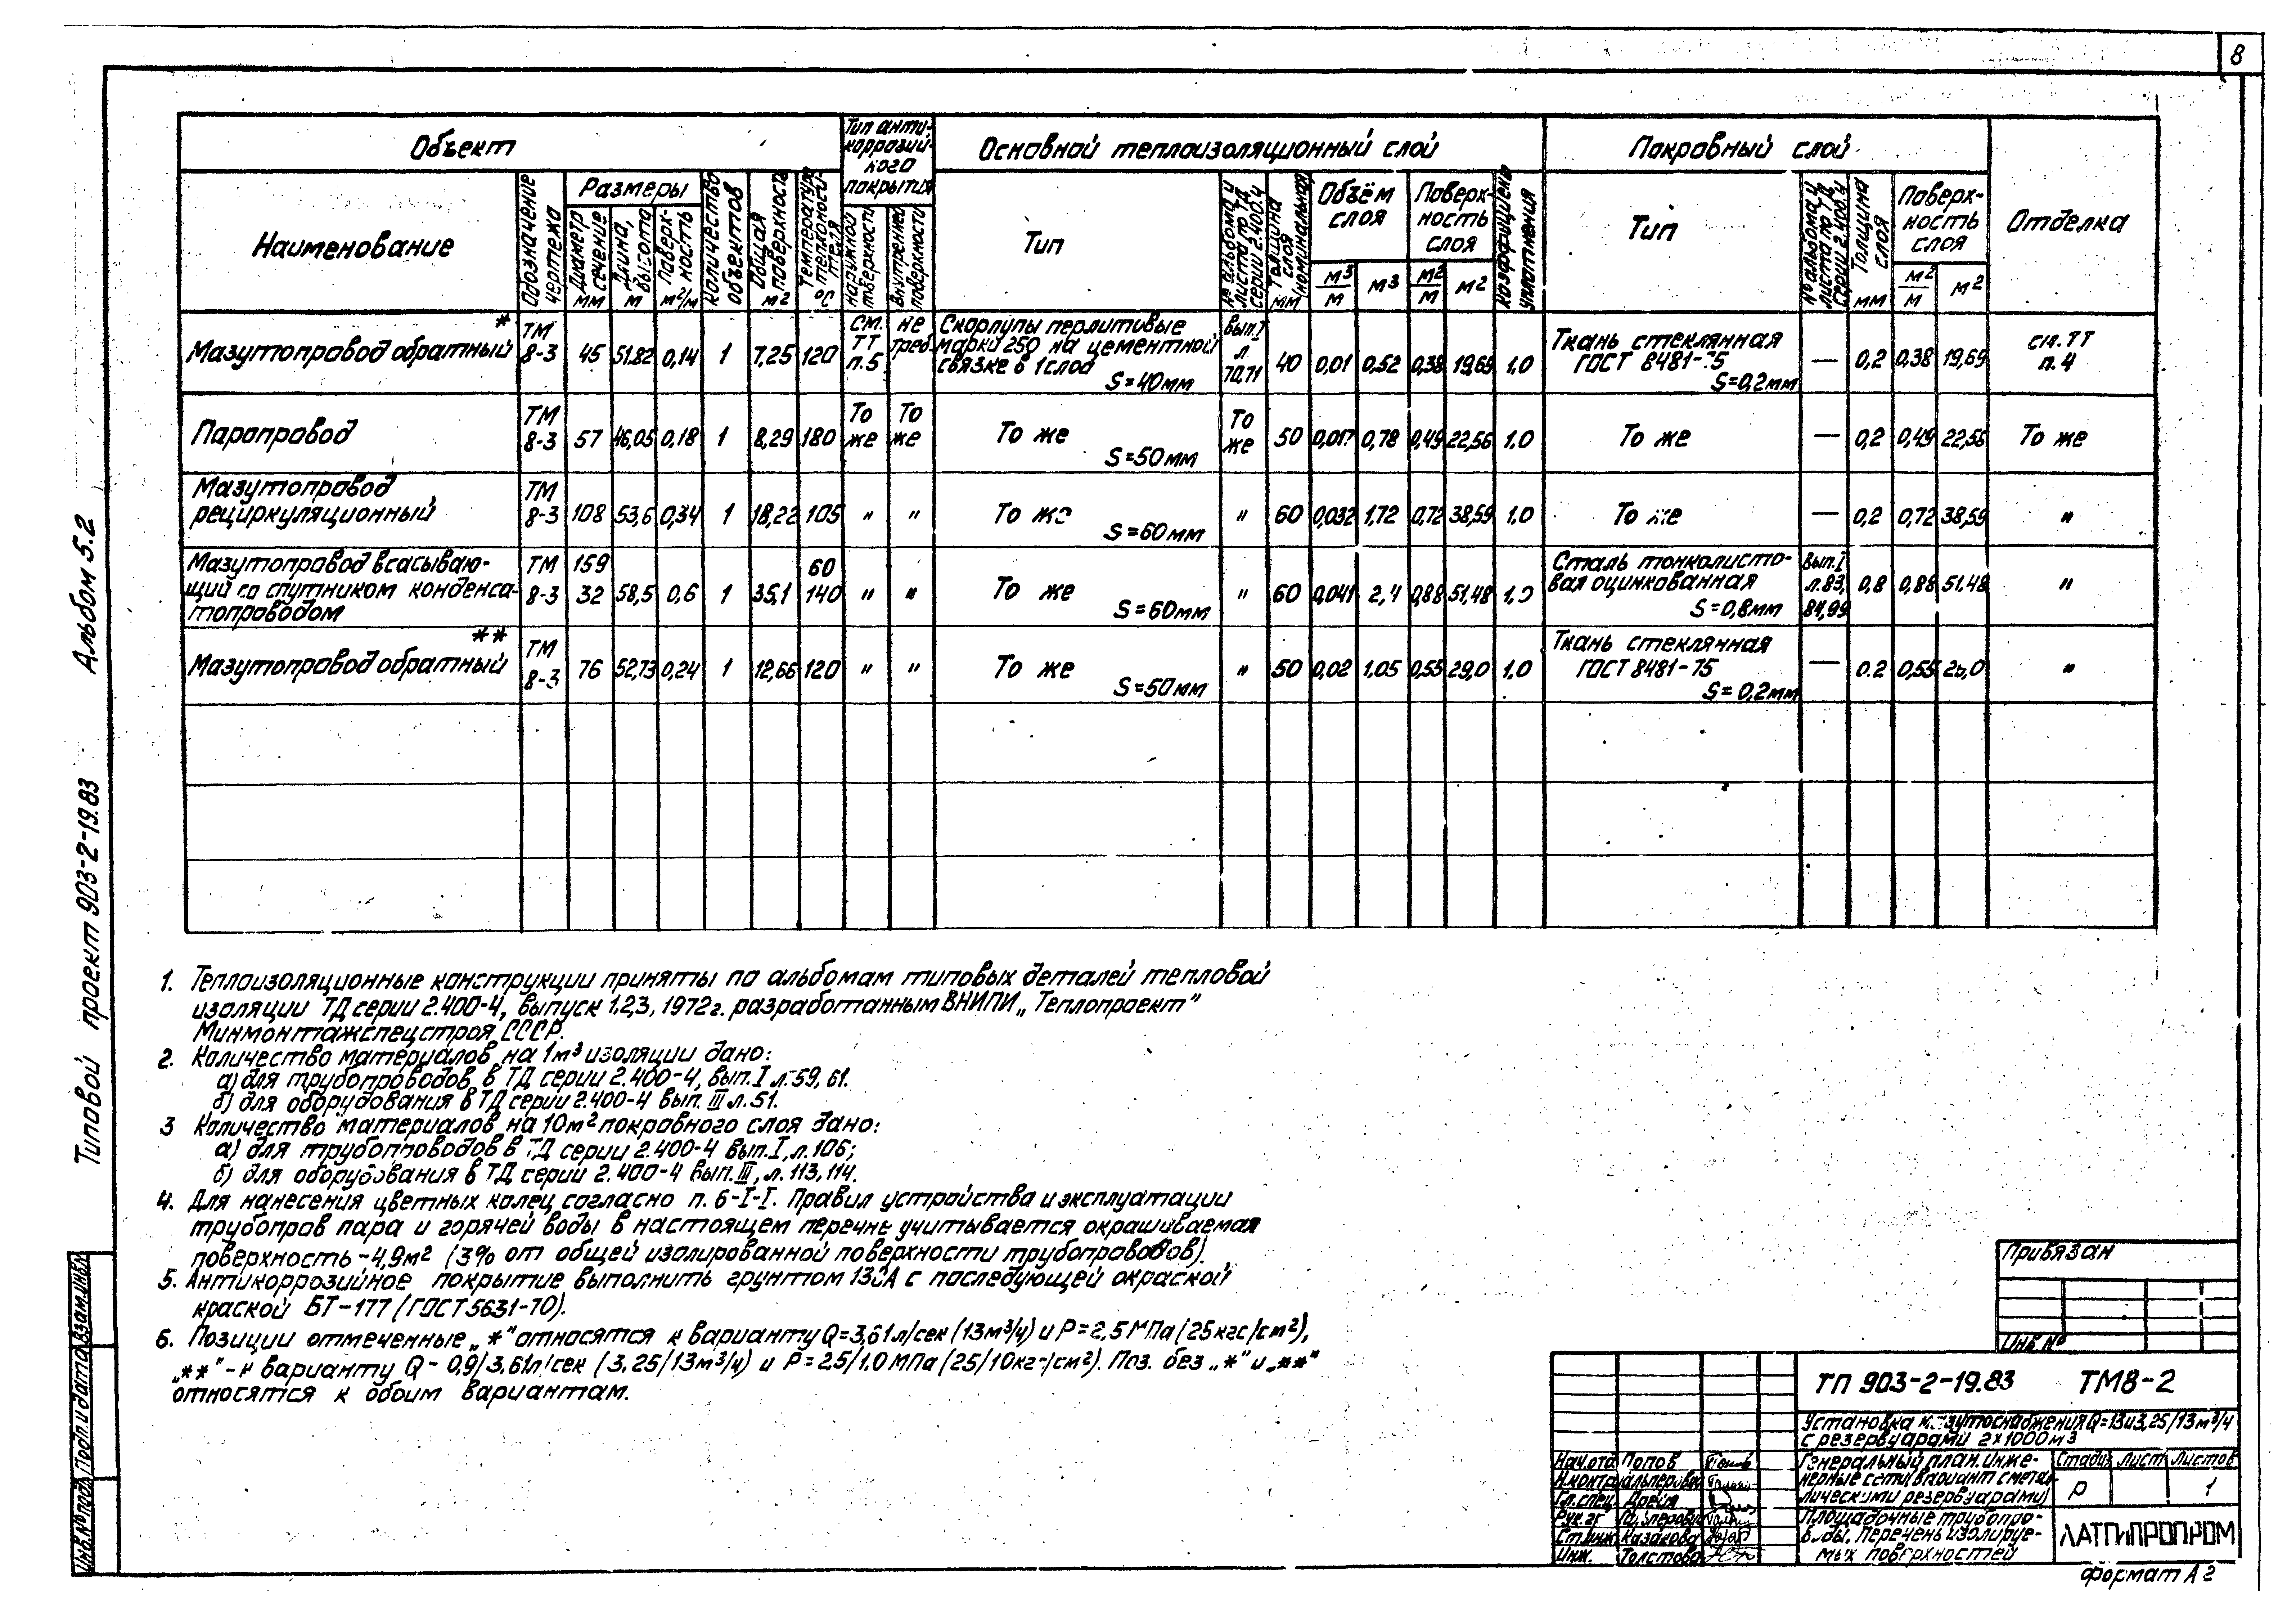 8
Объект
Тип анти-
коррозий-
ного
покрытия
Основной теплоизоляционный слой
Покровный слой
Отделка
Наименование
Обозначение чертежа
Размеры
Диаметр, сечение мм
Длина, высота м
Поверх-ность м²/м
Количество объектов
Общая поверхность м²
Температура теплоноси-теля °С
наружной поверхности
внутренней поверхности
Тип
№ альбома и листа по ТД серии 2.400.4
Толщина слоя номинальная мм
Объём слоя
м³/м
м³
Поверх-ность слоя
м²/м
м²
Коэффициент уплотнения
Тип
№ альбома и листа по ТД серии 2.400.4
Толщина слоя мм
Поверх-ность слоя
м²/м
м²
Мазутопровод обратный * ТМ 8-3 45 51,82 0,14 1 7,25 120 см. ТТ п.5 не треб. Скорлупы перлитовые марки 250 на цементной связке в 1 слой S=40мм Вып.I л. 70,71 40 0,01 0,52 0,38 19,69 1,0 Ткань стеклянная ГОСТ 8481-75 S=0,2мм — 0,2 0,38 19,69 см. ТТ п.4
Паропровод ТМ 8-3 57 46,05 0,18 1 8,29 180 То же То же То же S=50мм То же 50 0,017 0,78 0,49 22,56 1,0 То же — 0,2 0,49 22,56 То же
Мазутопровод рециркуляционный ТМ 8-3 108 53,6 0,34 1 18,22 105 " " То же S=60мм " 60 0,032 1,72 0,72 38,59 1,0 То же — 0,2 0,72 38,59 "
Мазутопровод всасываю-щий со спутником конденса-топроводом ТМ 8-3 159 32 58,5 0,6 1 35,1 60 140 " " То же S=60мм " 60 0,041 2,4 0,88 51,48 1,0 Сталь тонколисто-вая оцинкованная S=0,8мм Вып.I л.83, 84,99 0,8 0,88 51,48 "
Мазутопровод обратный ** ТМ 8-3 76 52,73 0,24 1 12,66 120 " " То же S=50мм " 50 0,02 1,05 0,55 29,0 1,0 Ткань стеклянная ГОСТ 8481-75 S=0,2мм — 0,2 0,55 "
1. Теплоизоляционные конструкции приняты по альбомам типовых деталей тепловой
изоляции ТД серии 2.400-4, выпуск 1,2,3, 1972г. разработанным ВНИПИ „Теплопроект"
Минмонтажспецстроя СССР.
2. Количество материалов на 1м³ изоляции дано:
а) для трубопроводов в ТД серии 2.400-4, вып. I л. 59, 61.
б) для оборудования в ТД серии 2.400-4 вып. III л. 51.
3 Количество материалов на 10м² покровного слоя дано:
а) для трубопроводов в ТД серии 2.400-4 вып. I, л. 106;
б) для оборудования в ТД серии 2.400-4 вып. III, л. 113, 114.
4. Для нанесения цветных колец согласно п. 6-I-I. Правил устройства и эксплуатации
трубопров пара и горячей воды в настоящем перечне учитывается окрашиваемая
поверхность - 4,9м² (3% от общей изолированной поверхности трубопроводов).
5. Антикоррозийное покрытие выполнить грунтом с последующей окраской
краской БТ-177 (ГОСТ 5631-70).
6. Позиции отмеченные „*" относятся к варианту Q=3,61л/сек (13м³/ч) и Р=2,5МПа (25кгс/см²),
„**" - к варианту Q - 0,9/3,61л/сек (3,25/13м³/ч) и Р=2,5/1,0МПа (25/10кгс/см²). Поз. без „*" и „**"
относятся к обоим вариантам.
Альбом 5.2
Типовой проект 903-2-19.83
Взам.инв.№
Подп. и дата
Инв.№ подл.
Привязан
Инв №
ТП 903-2-19.83 ТМ8-2
Установка мазутоснабжения Q=13и3,25/13м³/ч
с резервуарами 2х1000м³
Нач.отд Попов
Н.контр Альперович
Гл.спец. Дрейя
Рук.гр Альперович
Ст.инж Казакова
Инж. Толстова
Генеральный план. Инже-
нерные сети (вариант с метал-
лическими резервуарами)
Стадия Лист Листов
Р 1
Площадочные трубопро-
воды. Перечень изолируе-
мых поверхностей
ЛАТГИПРОПРОМ
Формат А2